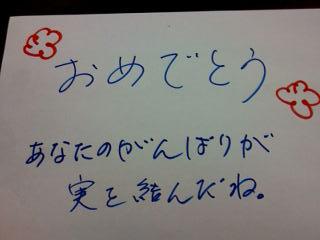 おめでとう
あなたのがんばりが
実を結んだね。